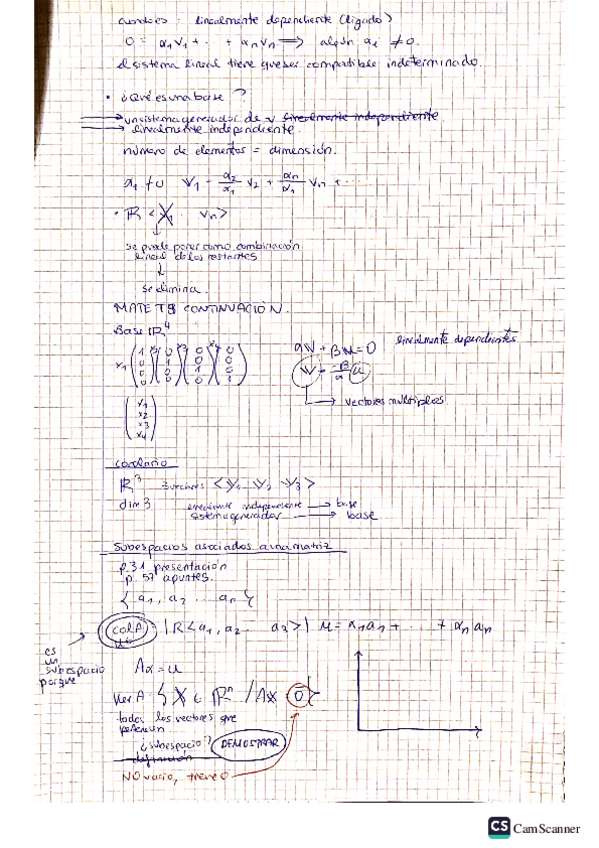 linealmente dependiente (ligado)
0 = α₁v₁ + ... + αₙvₙ ⟹ algún αᵢ ≠ 0.
el sistema lineal tiene que ser compatible indeterminado.
• ¿Qué es una base?
→ un sistema generador de V linealmente independiente
→ linealmente independiente.
número de elementos = dimensión.
α₁ ≠ 0 V₁ - α₂/α₁ V₂ + αₙ/α₁ Vₙ + ...
• ℝ < V₁ Vₙ>
↓
se puede poner como combinación
lineal de los restantes
↓
se elimina.
MATE T8 CONTINUACIÓN.
Base ℝ⁴
x₁ (1 0 0 0) x₂ (0 1 0 0) x₃ (0 0 1 0) x₄ (0 0 0 1)
αV + βu = 0 linealmente dependientes
V = -β/α u
→ vectores múltiplos
(x₁ x₂ x₃ x₄)
corolario
ℝ³ 3 vectores <V₁ V₂ V₃>
dim 3 linealmente independiente → base
sistema generador → base
Subespacios asociados a una matriz
p.31 presentación
p. 57 apuntes.
{a₁, a₂ ... aₙ}
Col A ℝ<a₁, a₂ ... a₃> | u = x₁a₁ + ... + xₙaₙ
es
un
subespacio
porque
Ax = u
Ker A = { X ∈ ℝⁿ / Ax = 0 }
todos los vectores que
¿subespacio? DEMOSTRAR
definición
NO vacío, tiene 0
CS CamScanner